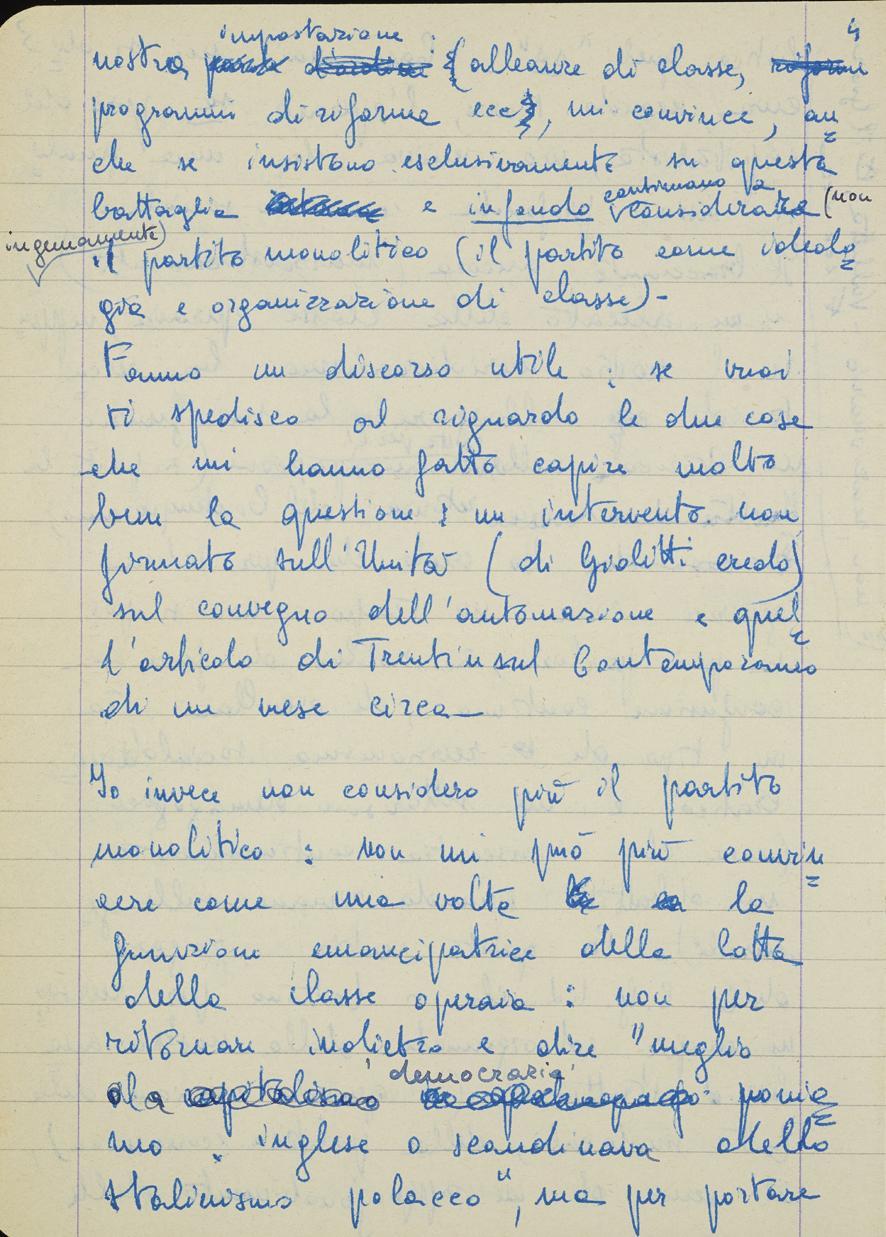 4
impostazione
nostra (alleanze di classe,
programmi di riforme ecc), mi convince, an=
che se insistono esclusivamente su questa
battaglia e in fondo continuano a considerare (non
ingenuamente)
il partito monolitico (il partito come ideolo=
gia e organizzazione di classe)-
Fanno un discorso utile : se vuoi
ti spedisco al riguardo le due cose
che mi hanno fatto capire molto
bene la questione : un intervento non
firmato sull'Unità (di Giolitti credo)
sul convegno dell'automazione e quel=
l'articolo di Trentin sul Contemporaneo
di un mese circa-
Io invece non considero più il partito
monolitico : non mi può più convin=
cere come una volta la
funzione emancipatrice della lotta
della classe operaia : non per
ritornare indietro e dire "meglio
la democrazia ponia=
mo inglese o scandinava dello
stalinismo polacco", ma per portare